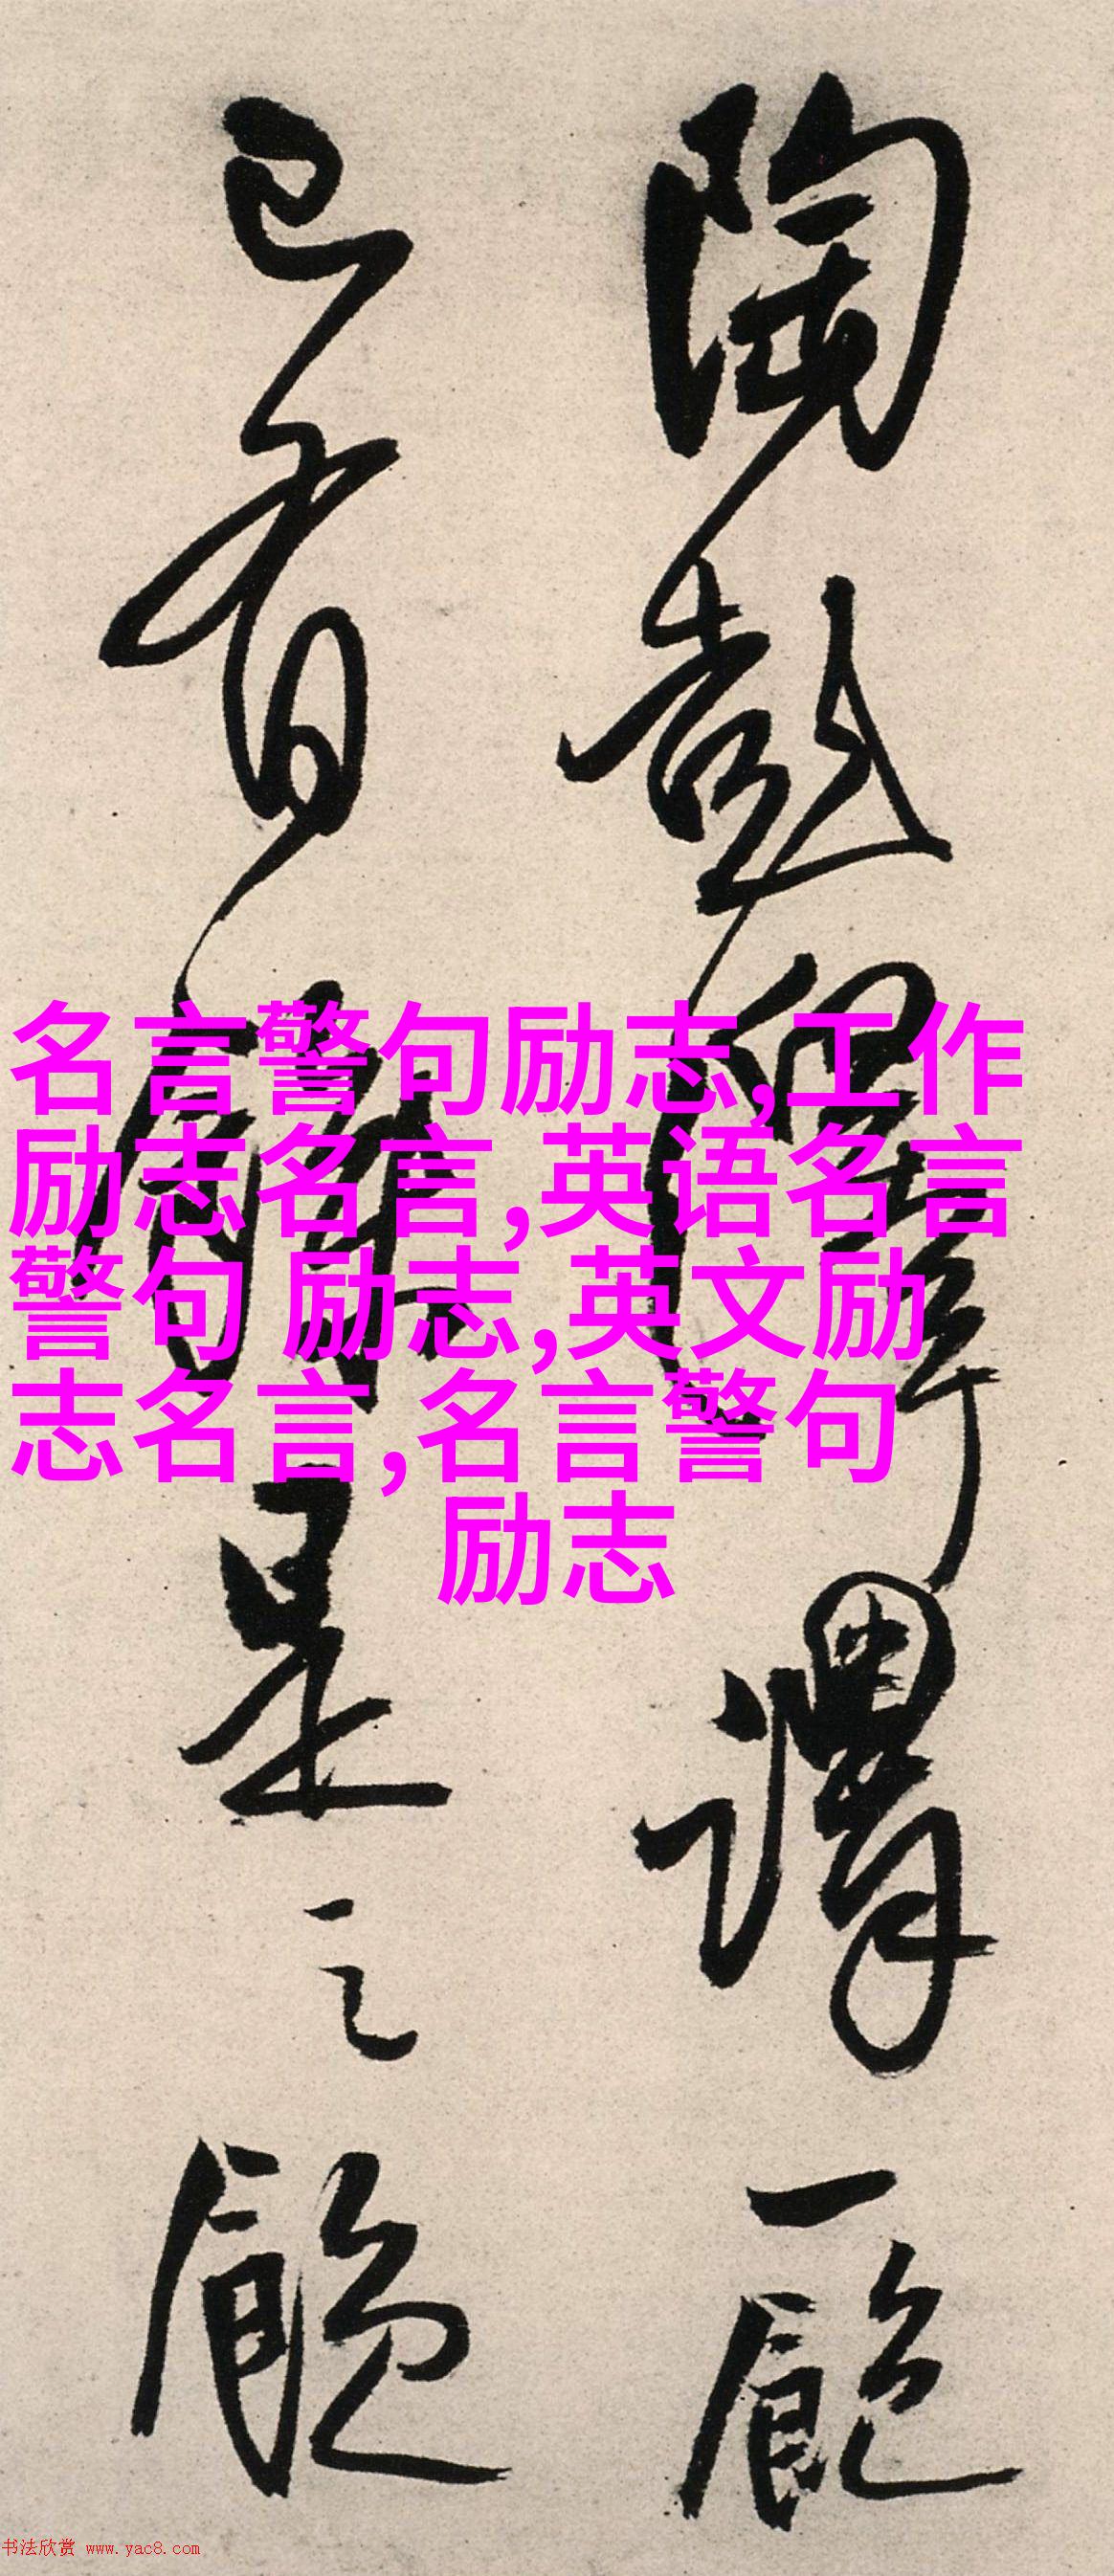 陶彭澤謂一飽
已有餘是之
名言警句励志,工作
励志名言,英语名言
警句 励志,英文励
志名言,名言警句
励志
书法欣赏 www.yac8.com